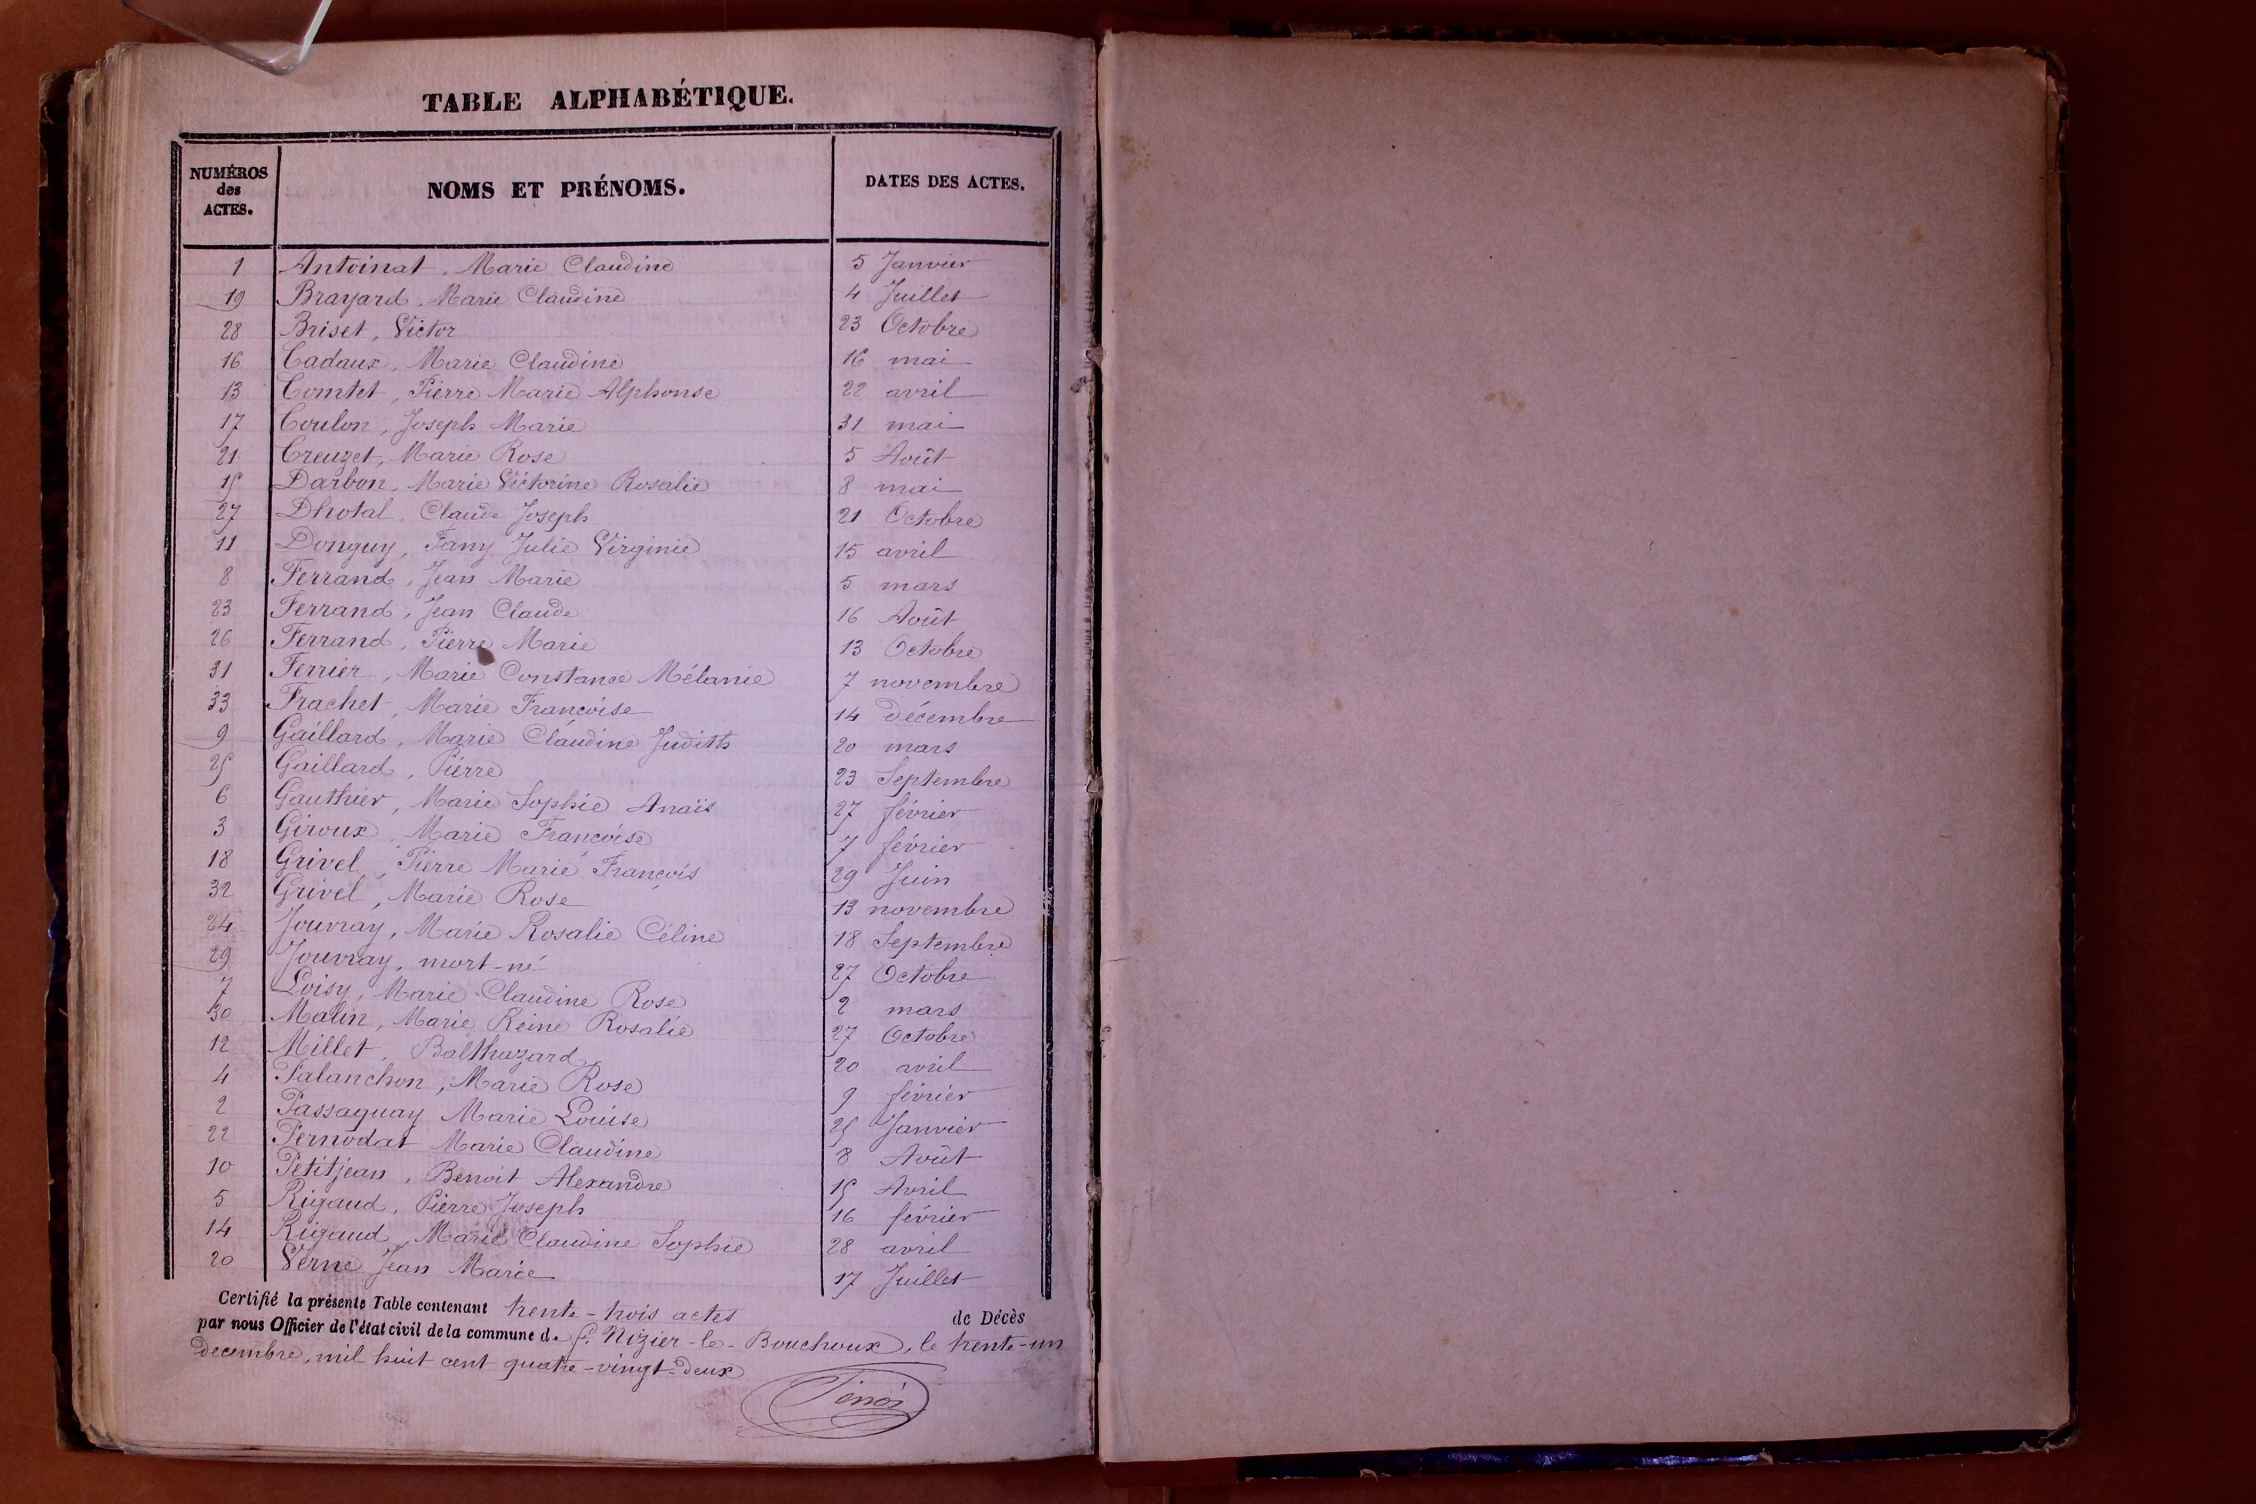 TABLE ALPHABÉTIQUE.
NUMÉROS des ACTES. NOMS ET PRÉNOMS. DATES DES ACTES.
1 Antoinat, Marie Claudine 5 Janvier
19 Brayard, Marie Claudine 4 Juillet
28 Briset, Victor 23 Octobre
16 Cadaux, Marie Claudine 16 mai
13 Comtet, Pierre Marie Alphonse 22 avril
17 Coulon, Joseph Marie 31 mai
21 Creuzet, Marie Rose 5 Août
15 Darbon, Marie Victorine Rosalie 8 mai
27 Dhotal, Claude Joseph 21 Octobre
11 Donguy, Fany Julie Virginie 15 avril
8 Ferrand, Jean Marie 5 mars
23 Ferrand, Jean Claude 16 Août
26 Ferrand, Pierre Marie 13 Octobre
31 Ferrier, Marie Constance Mélanie 7 novembre
33 Frachet, Marie Françoise 14 décembre
9 Gaillard, Marie Claudine Judith 20 mars
25 Gaillard, Pierre 23 Septembre
6 Gauthier, Marie Sophie Anaïs 27 février
3 Giroux, Marie Françoise 7 février
18 Grivel, Pierre Marie François 29 Juin
32 Grivel, Marie Rose 13 novembre
24 Jouvray, Marie Rosalie Céline 18 Septembre
29 Jouvray, mort-né 27 Octobre
7 Loisy, Marie Claudine Rose 2 mars
30 Malin, Marie Reine Rosalie 27 Octobre
12 Millet, Balthazard 20 avril
4 Palanchon, Marie Rose 9 février
2 Passaquay Marie Louise 25 Janvier
22 Pernodat Marie Claudine 8 Août
10 Petitjean, Benoit Alexandre 15 Avril
5 Rigaud, Pierre Joseph 16 février
14 Rigaud, Marie Claudine Sophie 28 avril
20 Verne Jean Marie 17 Juillet
Certifié la présente Table contenant trente-trois actes de Décès
par nous Officier de l'état civil de la commune de St. Nizier-le-Bouchoux, le trente-un
décembre, mil huit cent quatre-vingt-deux